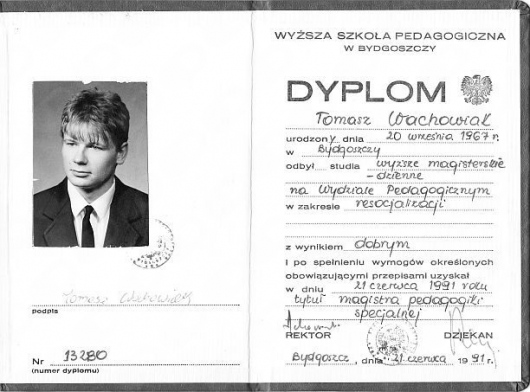 Tomasz Wachowiak
podpis
Nr 13280
(numer dyplomu)
WYŻSZA SZKOŁA PEDAGOGICZNA
W BYDGOSZCZY
DYPLOM
Tomasz Wachowiak
urodzony dnia 20 września 1967 r.
w Bydgoszczy
odbył studia wyższe magisterskie
- dzienne
na Wydziale Pedagogicznym
w zakresie resocjalizacji
z wynikiem dobrym
i po spełnieniu wymogów określonych
obowiązującymi przepisami uzyskał
w dniu 21 czerwca 1991 roku
tytuł magistra pedagogiki
specjalnej
REKTOR DZIEKAN
Bydgoszcz, dnia 21 czerwca 1991 r.